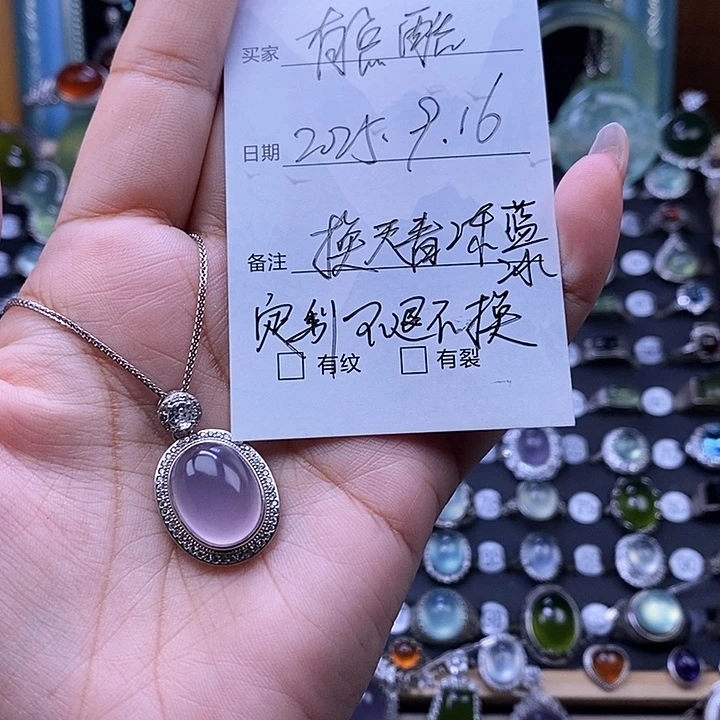 买家 有点酷
日期 2025.9.16
备注 换天青冻蓝冰
定制不退不换
有纹 有裂